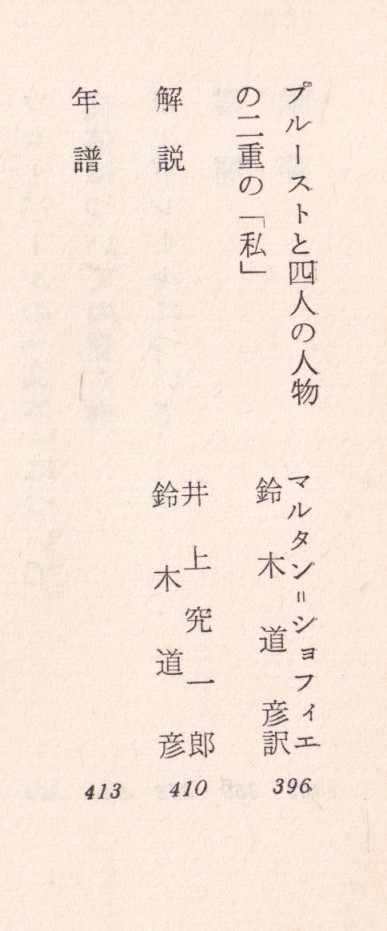 プルーストと四人の人物
の二重の「私」
マルタン=ショフィエ
鈴木道彦訳
396
解説
井上究一郎
鈴木道彦
410
年譜
413